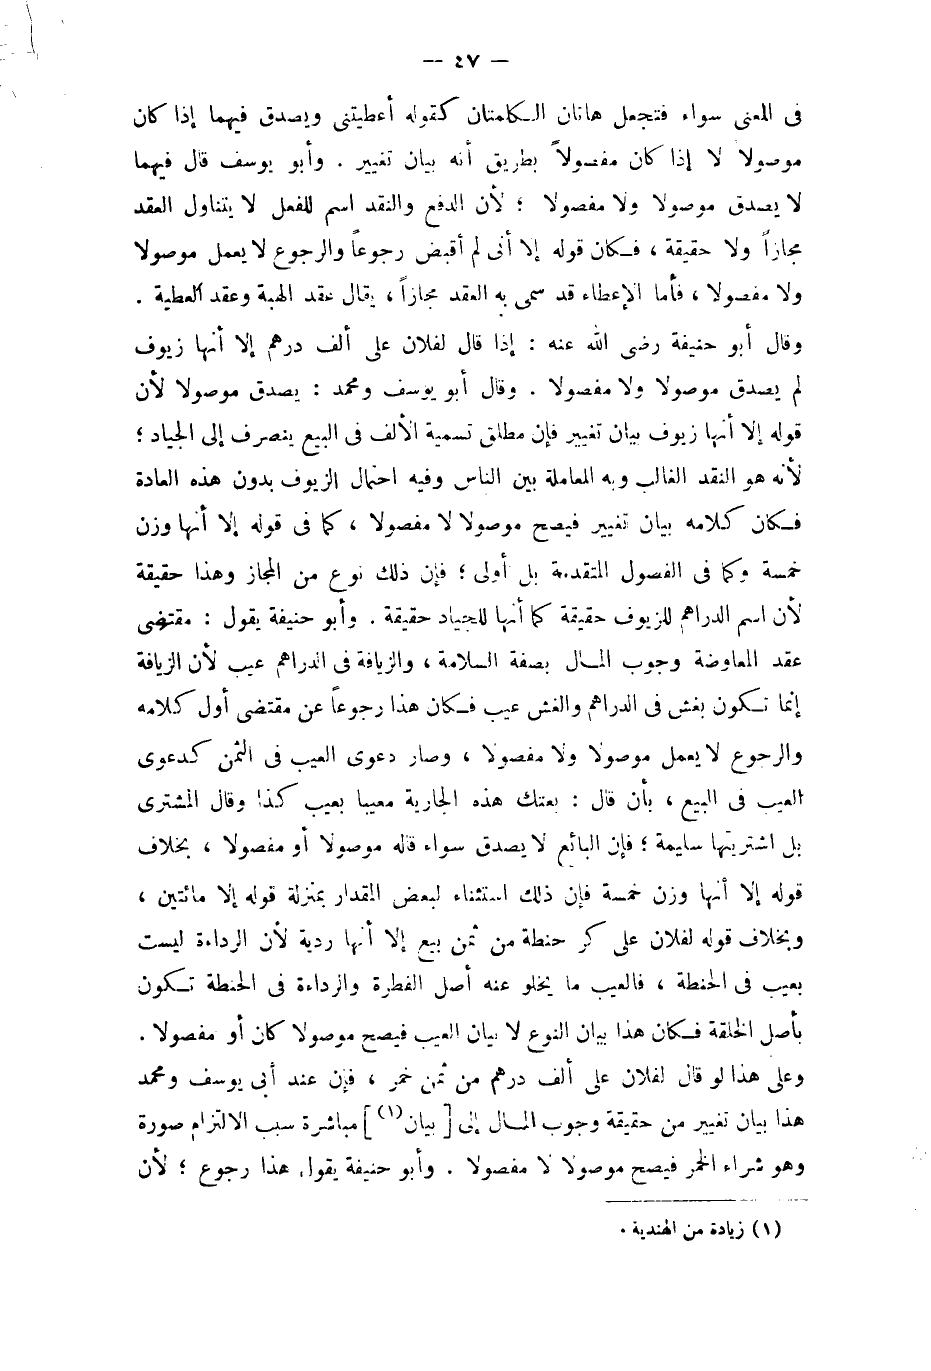 — ٤٧ —
فى المعنى سواء فتجعل هاتان الكلمتان كقوله أعطيتنى ويصدق فيهما إذا كان
موصولا لا إذا كان مفصولاً بطريق أنه بيان تغيير . وأبو يوسف قال فيهما
لا يصدق موصولا ولا مفصولا ؛ لأن الدفع والنقد اسم للفعل لا يتناول العقد
مجازاً ولا حقيقة ، فكان قوله إلا أنى لم أقبض رجوعاً والرجوع لا يعمل موصولا
ولا مفصولا ، فأما الإعطاء قد سمى به العقد مجازاً ، يقال عقد الهبة وعقد العطية .
وقال أبو حنيفة رضى الله عنه : إذا قال لفلان على ألف درهم إلا أنها زيوف
لم يصدق موصولا ولا مفصولا . وقال أبو يوسف ومحمد : يصدق موصولا لأن
قوله إلا أنها زيوف بيان تغيير فإن مطلق تسمية الألف فى البيع ينصرف إلى الجياد ؛
لأنه هو النقد الغالب وبه المعاملة بين الناس وفيه احتمال الزيوف بدون هذه العادة
فكان كلامه بيان تغيير فيصح موصولا لا مفصولا ، كما فى قوله إلا أنها وزن
خمسة وكما فى الفصول المتقدمة بل أولى ؛ فإن ذلك نوع من المجاز وهذا حقيقة
لأن اسم الدراهم للزيوف حقيقة كما أنها للجياد حقيقة . وأبو حنيفة يقول : مقتضى
عقد المعاوضة وجوب المال بصفة السلامة ، والزيافة فى الدراهم عيب لأن الزيافة
إنما تكون بغش فى الدراهم والغش عيب فكان هذا رجوعاً عن مقتضى أول كلامه
والرجوع لا يعمل موصولا ولا مفصولا ، وصار دعوى العيب فى الثمن كدعوى
العيب فى البيع ، بأن قال : بعتك هذه الجارية معيبا بعيب كذا وقال المشترى
بل اشتريتها سليمة ؛ فإن البائع لا يصدق سواء قاله موصولا أو مفصولا ، بخلاف
قوله إلا أنها وزن خمسة فإن ذلك استثناء لبعض المقدار بمنزلة قوله إلا مائتين ،
وبخلاف قوله لفلان على كر حنطة من ثمن بيع إلا أنها ردية لأن الرداءة ليست
بعيب فى الحنطة ، فالعيب ما يخلو عنه أصل الفطرة والرداءة فى الحنطة تكون
بأصل الخلقة فكان هذا بيان النوع لا بيان العيب فيصح موصولا كان أو مفصولا .
وعلى هذا لو قال لفلان على ألف درهم من ثمن خمر ، فإن عند أبى يوسف ومحمد
هذا بيان تغيير من حقيقة وجوب المال إلى [ بيان(١) ] مباشرة سبب الالتزام صورة
وهو شراء الخمر فيصح موصولا لا مفصولا . وأبو حنيفة يقول هذا رجوع ؛ لأن
(١) زيادة من الهندية .